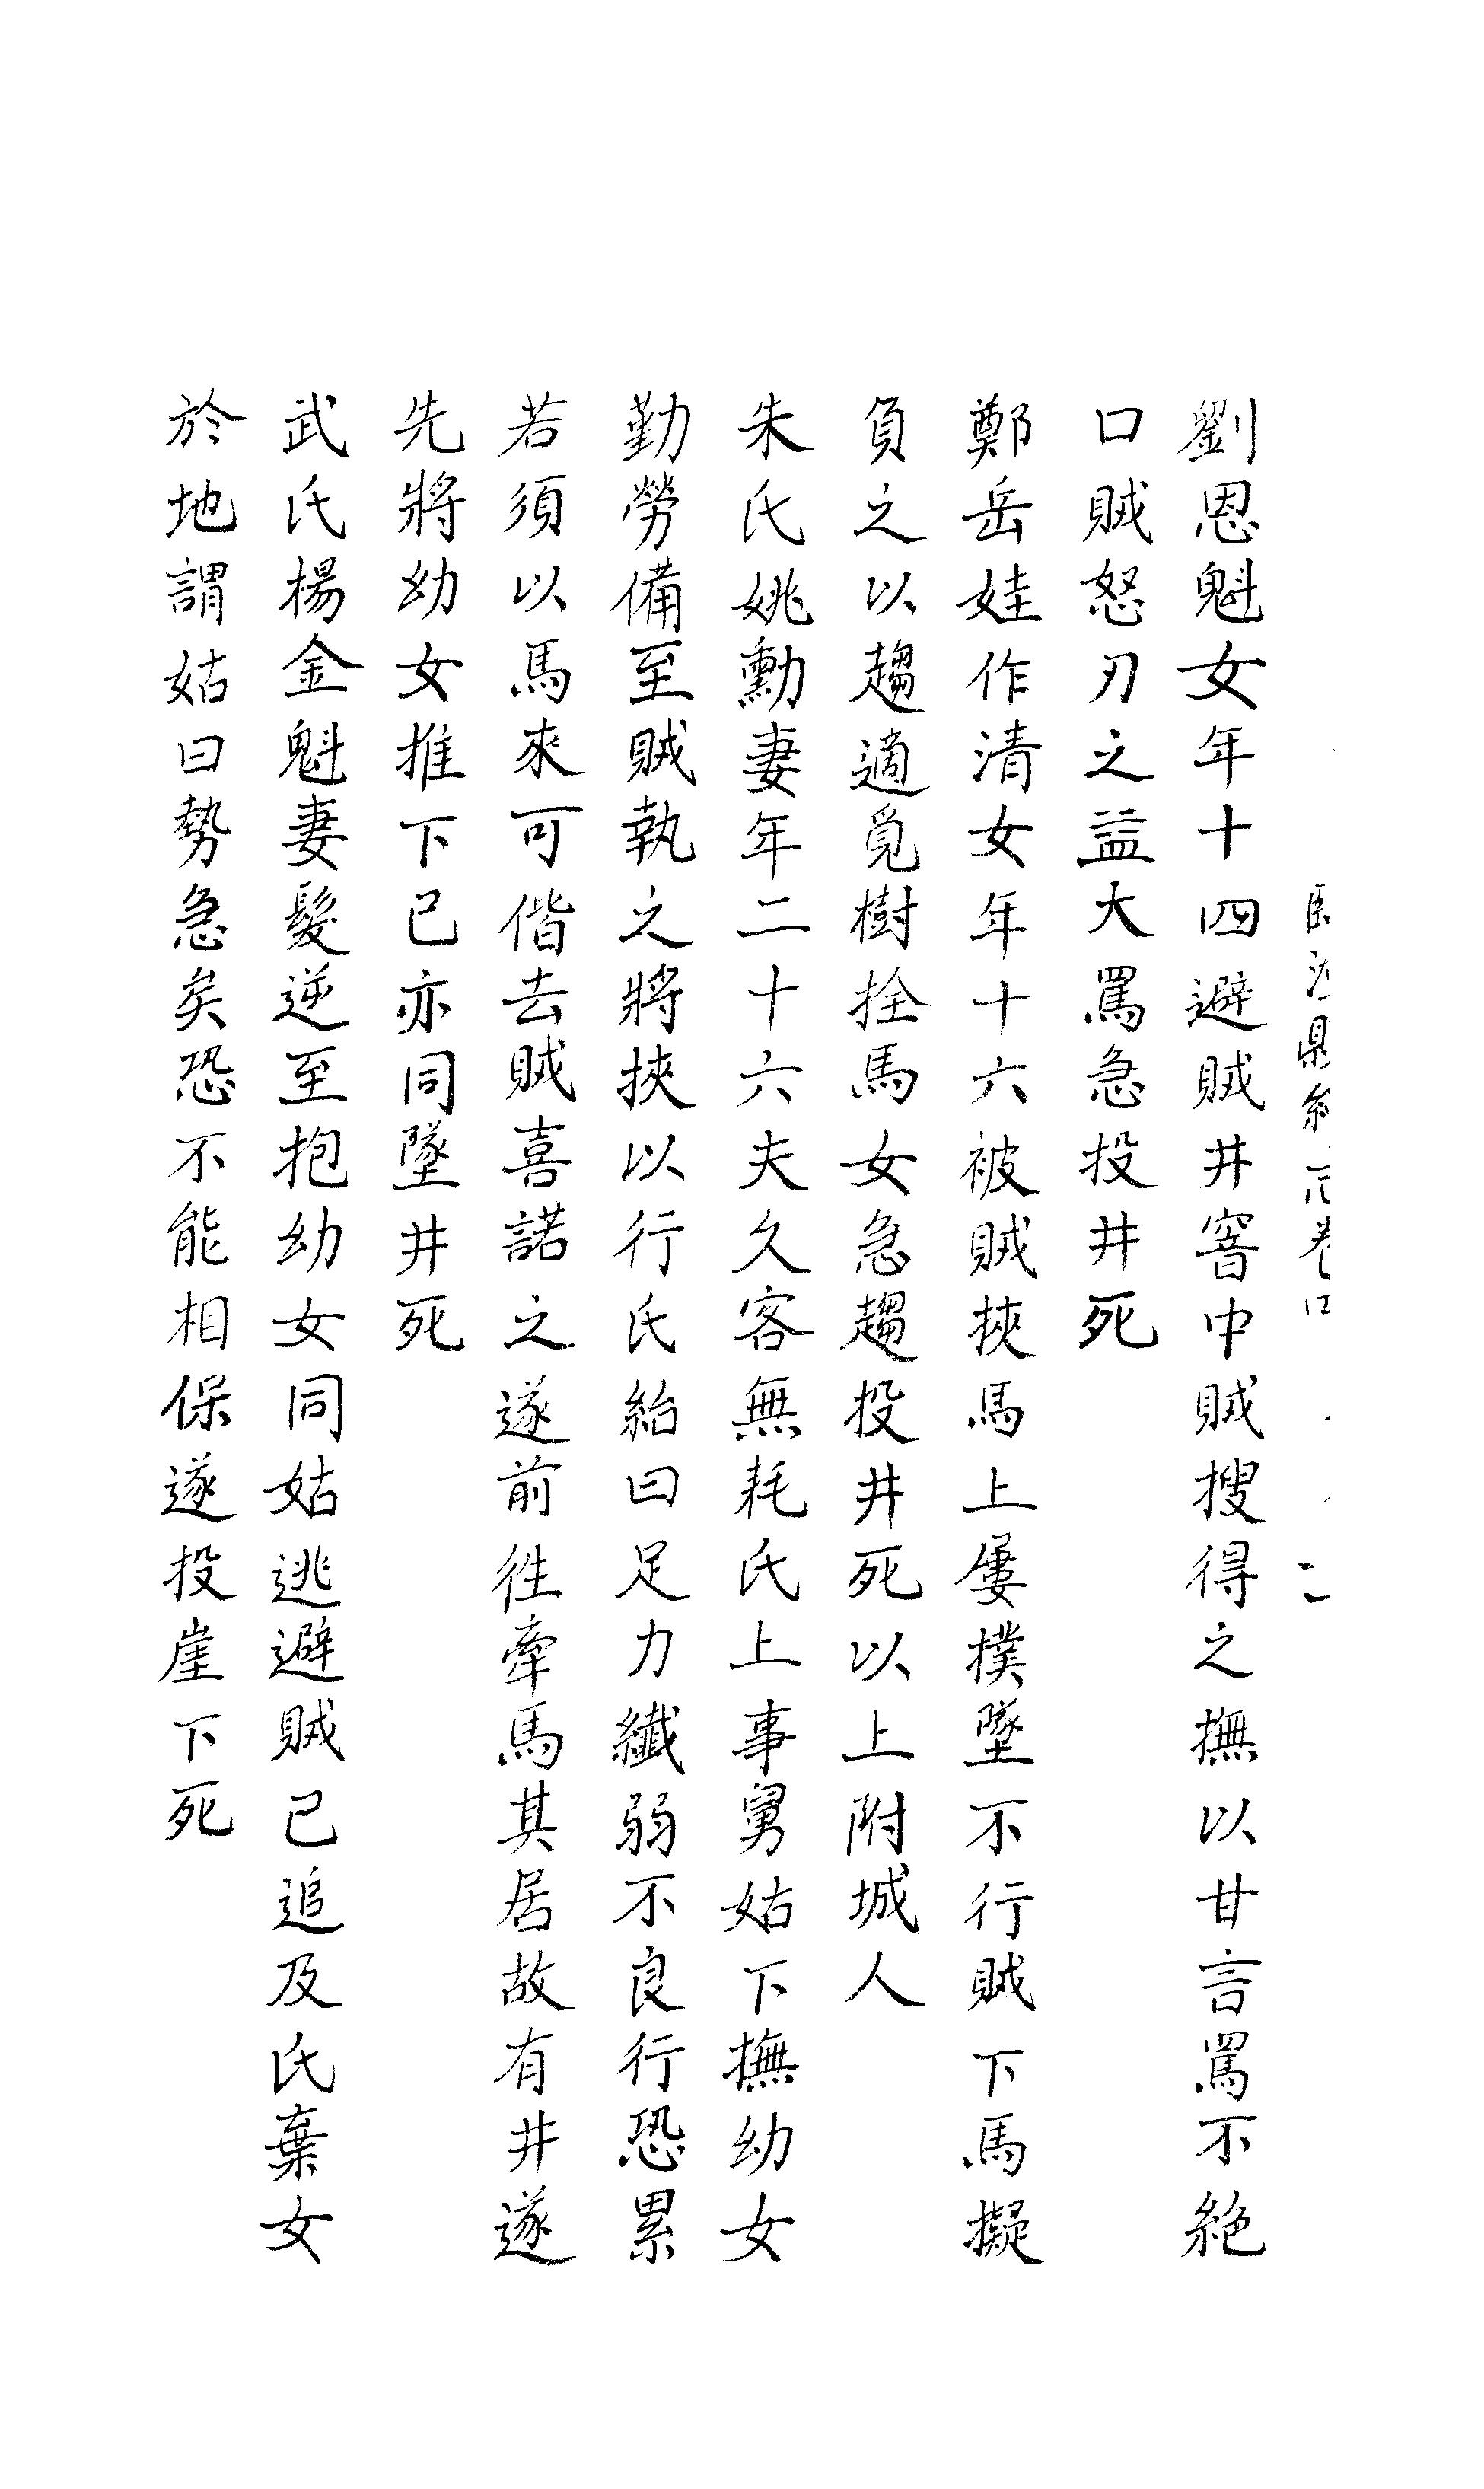 劉恩魁女年十四避賊井窨中賊搜得之撫以甘言罵不絶
口賊怒刃之益大罵急投井死
鄭岳娃作清女年十六被賊挾馬上屢撲墜不行賊下馬擬
負之以趨適覓樹拴馬女急趨投井死以上附城人
朱氏姚勳妻年二十六夫久客無耗氏上事舅姑下撫幼女
勤勞備至賊執之將挾以行氏紿曰足力纖弱不良行恐累
若須以馬來可偕去賊喜諾之遂前徃牽馬其居故有井遂
先將幼女推下已亦同墜井死
武氏楊金魁妻髮逆至抱幼女同姑逃避賊已追及氏棄女
於地謂姑曰勢急矣恐不能相保遂投崖下死